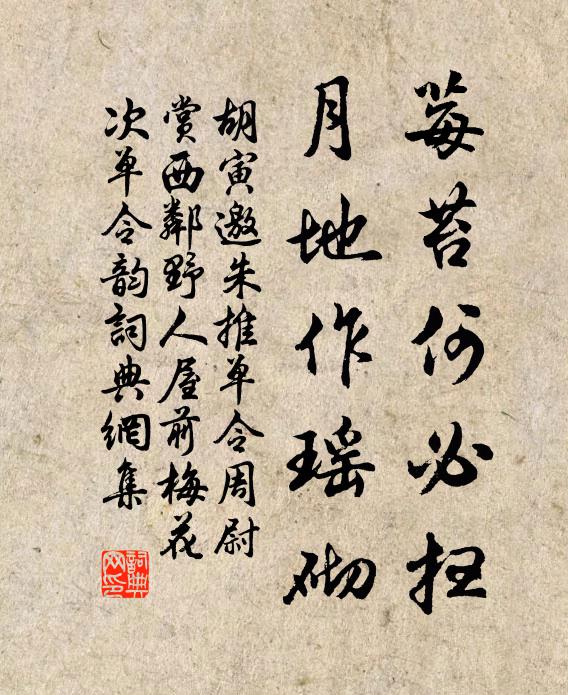 莓苔何必扫
月地作瑶砌
胡寅邀朱推单令周尉
賞西鄰野人屋前梅花
次单令韵詞典網集
詞典
网印